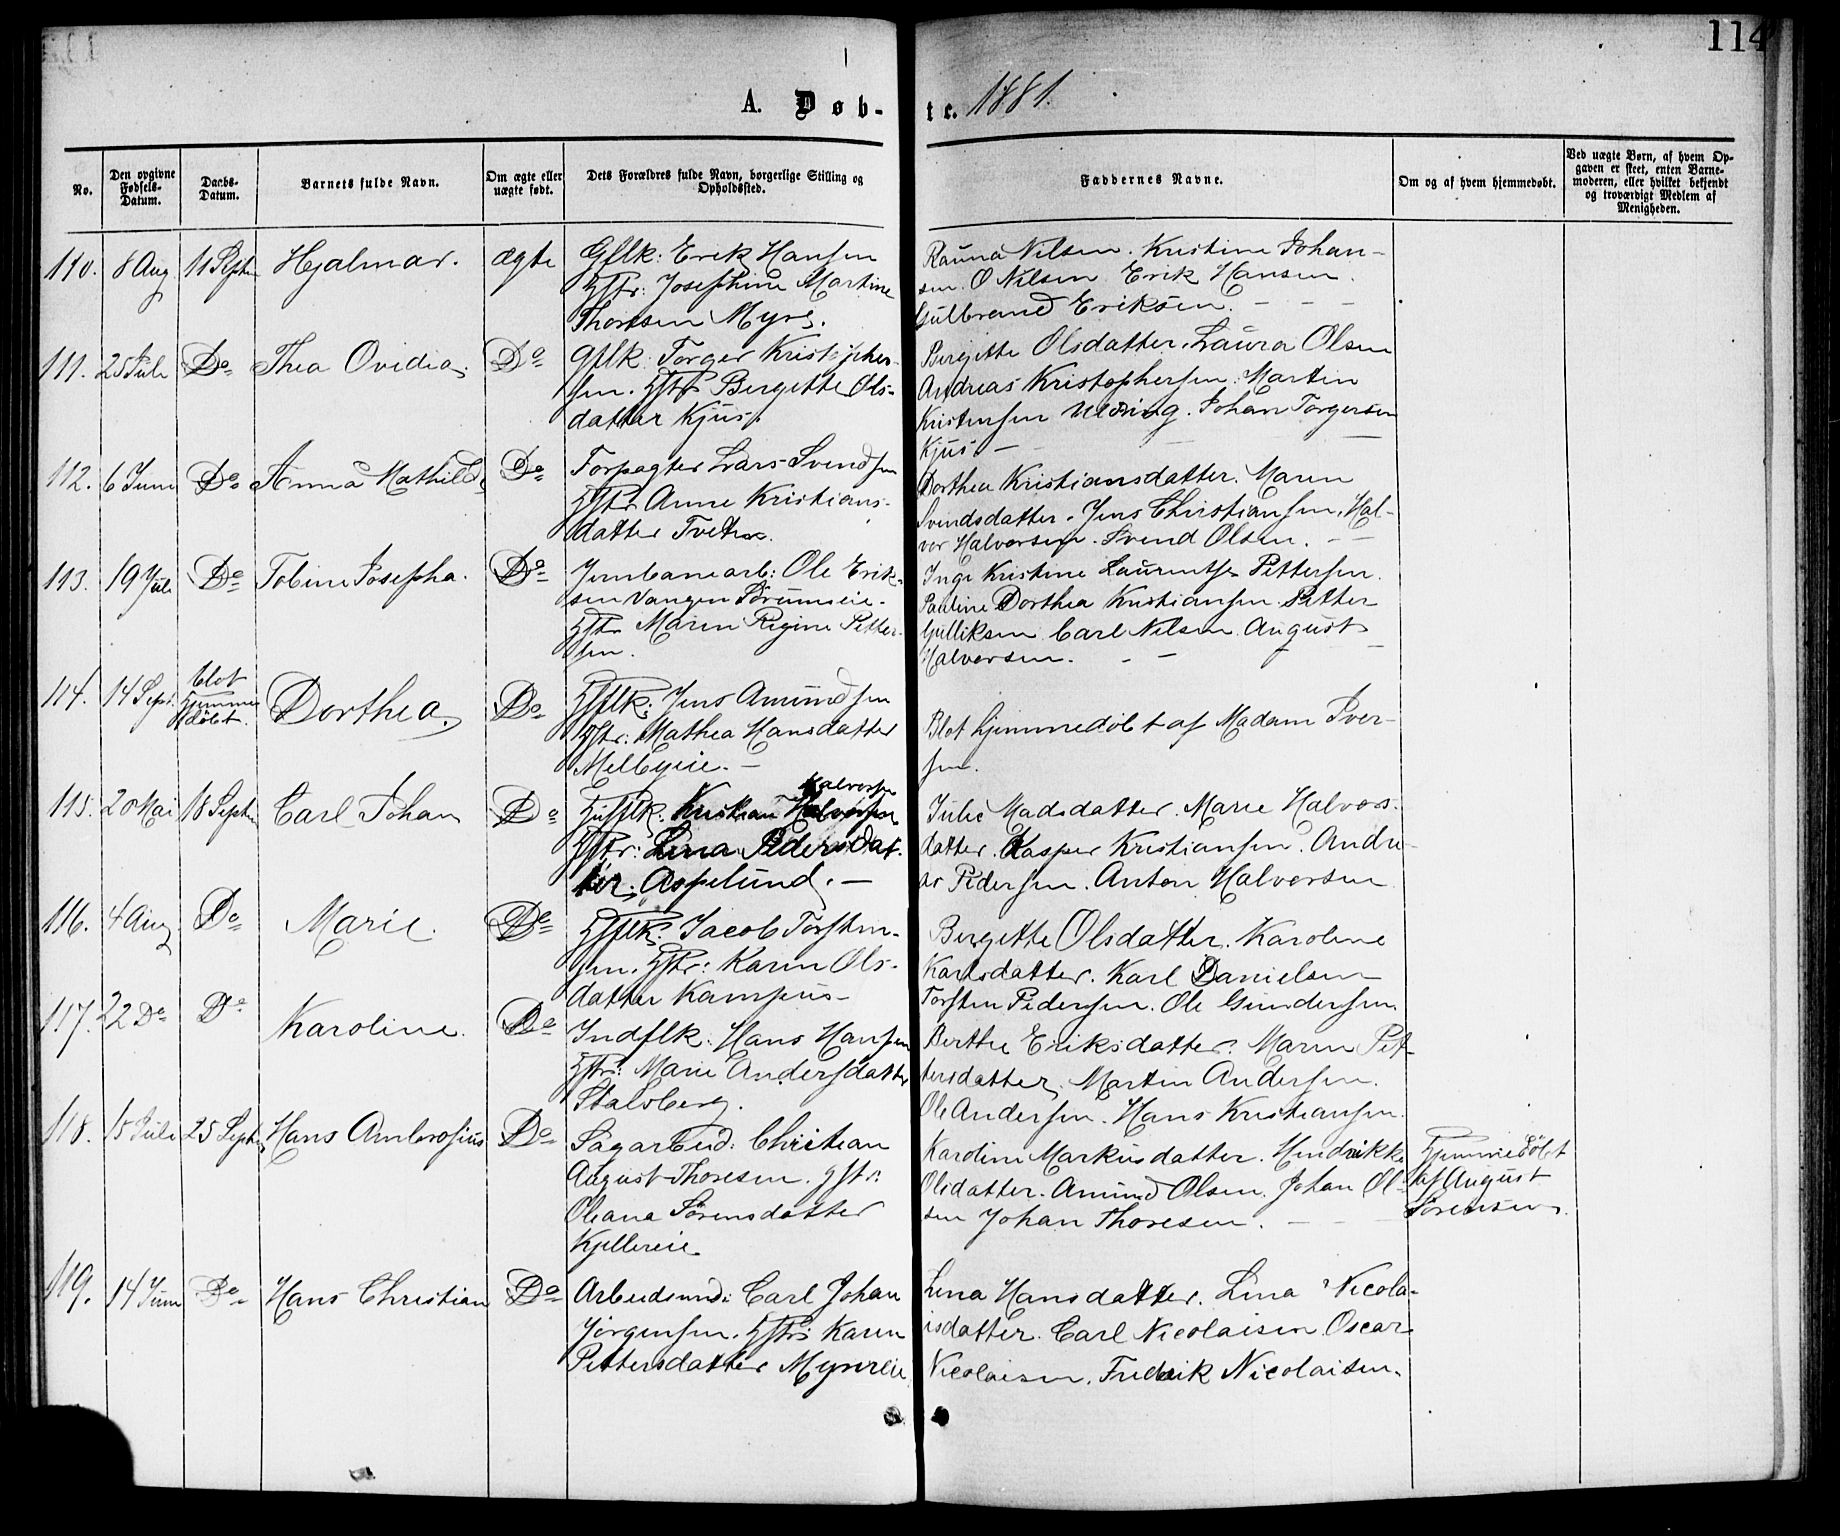 114
A. Døb-
te. 1881.
No.
Den opgivne Fødsels-Datum.
Daabs-Datum.
Barnets fulde Navn.
Om ægte eller uægte født.
Dets Forældres fulde Navn, borgerlige Stilling og Opholdssted.
Faddernes Navne.
Om og af hvem hjemmedøbt.
Ved uægte Børn, af hvem Op-
gaven er skeet, enten Barne-
moderen, eller hvilket bekjendt
og troværdigt Medlem af
Menigheden.
110. 8 Aug 11 Septr Hjalmar. ægte Gflk: Erik Hansen
Hstr: Josephine Martine
Thoresen Myre.
Rauna Nilsen. Kristine Johan-
sen. O Nilsen Erik Hansen.
Gulbrand Eriksen. - - -
111. 25 Juli Do Thea Ovidia. Do Gflk: Torger Kristopher-
sen. Hstr Bergitte Ols-
datter Kjus.
Birgitte Olsdatter. Laura Olsen
Andreas Kristophersen. Martin
Kristensen Uldring. Johan Torgersen
Kjus -
112. 6 Juni Do Anna Mathilde Do Forpagter Lars Svendsen
Hstr Anne Kristians-
datter Tveter.
Dorthea Kristiansdatter. Maren
Svendsdatter. Jens Christiansen. Hal-
vor Halvorsen. Svend Olsen. - -
113. 19 Juli Do Tobine Josepha. Do Jernbanearb: Ole Erik-
sen Vangen Sørumeie.
Hstr Maren Regine Petter-
sen.
Inge Kristine Laurentse Pettersen.
Pauline Dorthea Kristiansen. Petter
Gulliksen Carl Nilsen August
Halvorsen. - - - -
114. 14 Sept. blot
hjemme
døbt. Dorthea. Do Hsflk: Jens Amundsen
Hstr: Mathea Hansdatter
Melbyeie. -
Blot hjemmedøbt af Madam Iver-
sen.
115. 20 Mai 18 Septr Carl Johan Do Husflk. Kristian Halvorsen
Halvorsen
Hstr: Lina Pedersdat-
ter. Aspelund. -
Julie Madsdatter. Marie Halvors-
datter. Kasper Kristiansen. Andre-
as Pedersen. Anton Halvorsen
116. 4 Aug Do Marie. Do Hsflk: Jacob Torsten-
sen. Hstr: Karen Ols-
datter Kampus-
Bergitte Olsdatter. Karoline
Karlsdatter. Karl Danielsen
Torsten Pedersen. Ole Gundersen.
117. 22 Do Do Karoline. Do Indflk: Hans Hansen
Hstr: Marie Andersdatter
Stalsberg.
Berthe Eriksdatter. Maren Pet-
tersdatter. Martin Andersen.
Ole Andersen. Hans Kristiansen.
118. 15 Juli 25 Septr Hans Ambrosius Do Sagarbeid: Christian
August Thoresen. Hstr:
Oleana Sørensdatter
Kjellereie.
Karoline Markusdatter. Hendrikke
Olsdatter. Amund Olsen. Johan Ol-
sen Johan Thoresen. - - -
Hjemmedøbt
af August
Sørensen.
119. 14 Juni Do Hans Christian Do Arbeidsmd: Carl Johan
Jørgensen. Hstr: Karen
Pettersdatter Myrereie.
Lina Hansdatter. Lina Nicola-
isdatter. Carl Nicolaisen Oscar
Nicolaisen. Fredrik Nicolaisen.